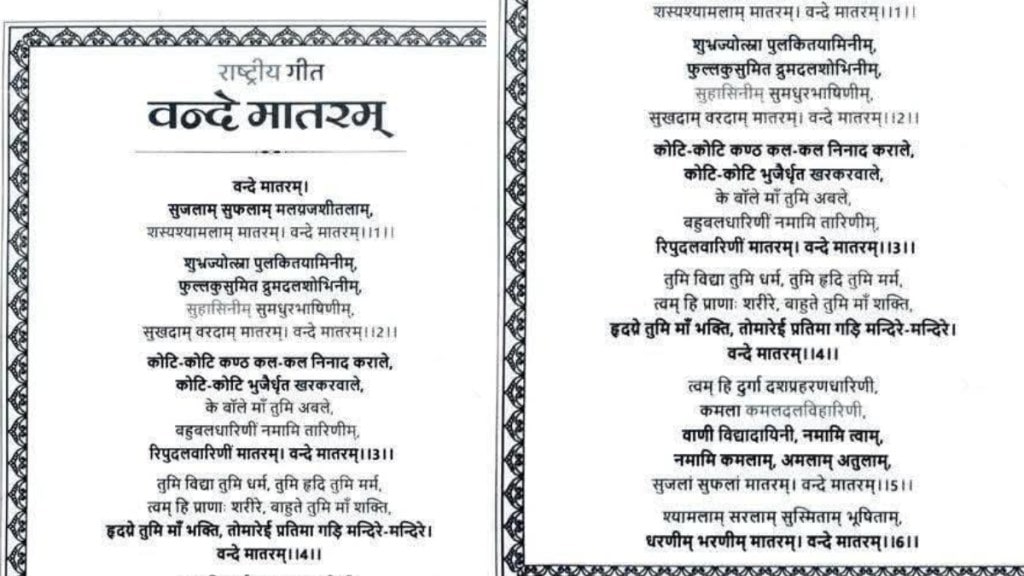 राष्ट्रीय गीत
वन्दे मातरम्
वन्दे मातरम्।
सुजलाम् सुफलाम् मलयजशीतलाम्,
शस्यश्यामलाम् मातरम्। वन्दे मातरम्।।1।।
शुभ्रज्योत्स्ना पुलकितयामिनीम्,
फुल्लकुसुमित द्रुमदलशोभिनीम्,
सुहासिनीम् सुमधुरभाषिणीम्,
सुखदाम् वरदाम् मातरम्। वन्दे मातरम्।।2।।
कोटि-कोटि कण्ठ कल-कल निनाद कराले,
कोटि-कोटि भुजैर्धृत खरकरवाले,
के बॉले माँ तुमि अबले,
बहुबलधारिणीं नमामि तारिणीम्,
रिपुदलवारिणीं मातरम्। वन्दे मातरम्।।3।।
तुमि विद्या तुमि धर्म, तुमि हृदि तुमि मर्म,
त्वम् हि प्राणाः शरीरे, बाहुते तुमि माँ शक्ति,
हृदये तुमि माँ भक्ति, तोमारेई प्रतिमा गड़ि मन्दिरे-मन्दिरे।
वन्दे मातरम्।।4।।
शस्यश्यामलाम् मातरम्। वन्दे मातरम्।।1।।
शुभ्रज्योत्स्ना पुलकितयामिनीम्,
फुल्लकुसुमित द्रुमदलशोभिनीम्,
सुहासिनीम् सुमधुरभाषिणीम्,
सुखदाम् वरदाम् मातरम्। वन्दे मातरम्।।2।।
कोटि-कोटि कण्ठ कल-कल निनाद कराले,
कोटि-कोटि भुजैर्धृत खरकरवाले,
के बॉले माँ तुमि अबले,
बहुबलधारिणीं नमामि तारिणीम्,
रिपुदलवारिणीं मातरम्। वन्दे मातरम्।।3।।
तुमि विद्या तुमि धर्म, तुमि हृदि तुमि मर्म,
त्वम् हि प्राणाः शरीरे, बाहुते तुमि माँ शक्ति,
हृदये तुमि माँ भक्ति, तोमारेई प्रतिमा गड़ि मन्दिरे-मन्दिरे।
वन्दे मातरम्।।4।।
त्वम् हि दुर्गा दशप्रहरणधारिणी,
कमला कमलदलविहारिणी,
वाणी विद्यादायिनी, नमामि त्वाम्,
नमामि कमलाम्, अमलाम् अतुलाम्,
सुजलां सुफलां मातरम्। वन्दे मातरम्।।5।।
श्यामलाम् सरलाम् सुस्मिताम् भूषिताम्,
धरणीम् भरणीम् मातरम्। वन्दे मातरम्।।6।।